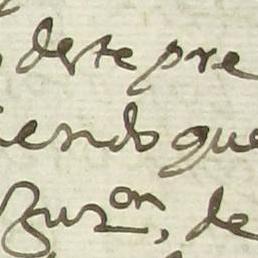 deste pre
iendo que
Guzon, de